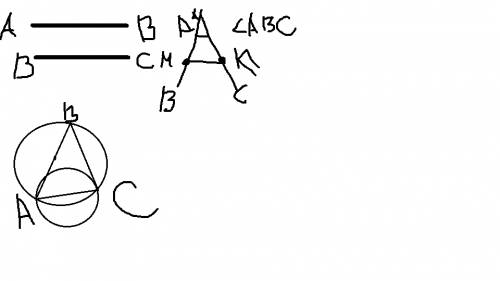 A B A ∠ABC
B C M K
B C
B
A C